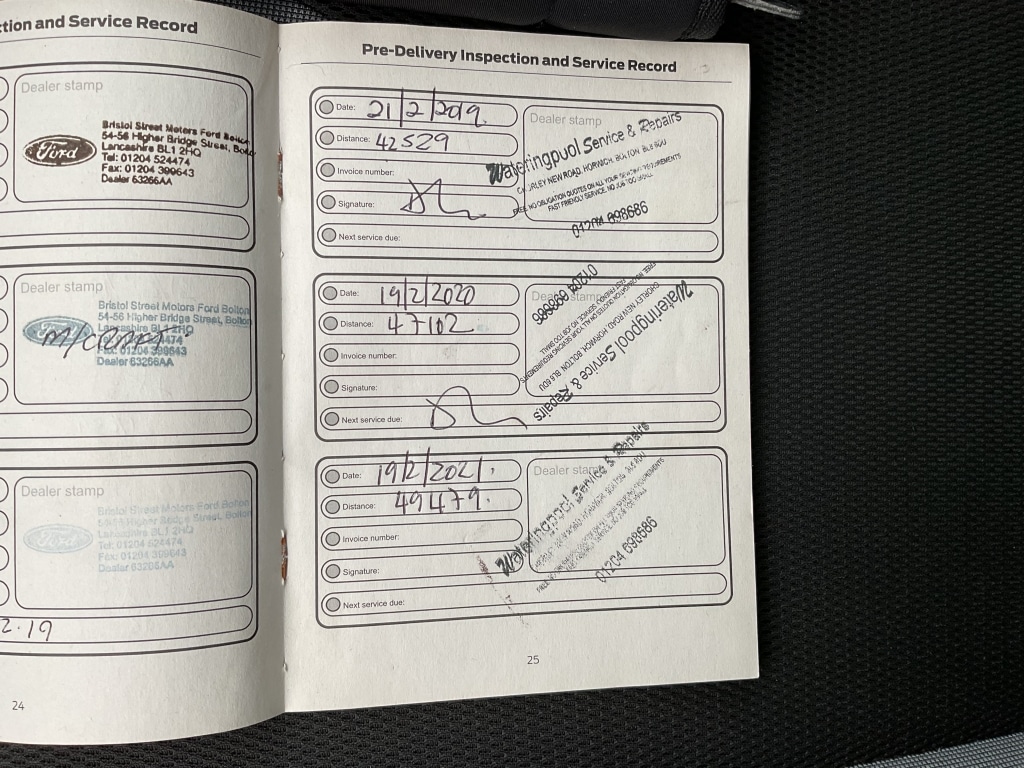 ction and Service Record
Dealer stamp
Ford
Bristol Street Motors Ford Bolton
54-56 Higher Bridge Street, Bolto
Lancashire BL1 2HQ
Tel: 01204 524474
Fax: 01204 399643
Dealer 63266AA
Dealer stamp
Bristol Street Motors Ford Bolton
54-56 Higher Bridge Street, Bolton
Lancashire BL1 2HQ
Fax: 01204 399643
Dealer 63266AA
Dealer stamp
Ford
Bristol Street Motors Ford Bolton
54-56 Higher Bridge Street, Bolton
Lancashire BL1 2HQ
Tel: 01204 524474
Fax: 01204 399643
Dealer 63266AA
2.19
24
Pre-Delivery Inspection and Service Record
Date: 21/2/2019.
Distance: 42529
Invoice number:
Signature:
Next service due:
Dealer stamp
Wateringpool Service & Repairs
CHORLEY NEW ROAD, HORWICH, BOLTON BL6 6DU
FREE NO OBLIGATION QUOTES ON ALL YOUR SERVICING REQUIREMENTS
FAST FRIENDLY SERVICE, NO JOB TOO SMALL
01204 698686
Date: 19/2/2020
Distance: 47102
Invoice number:
Signature:
Next service due:
Dealer stamp
Wateringpool Service & Repairs
CHORLEY NEW ROAD, HORWICH, BOLTON BL6 6DU
FREE NO OBLIGATION QUOTES ON ALL YOUR SERVICING REQUIREMENTS
FAST FRIENDLY SERVICE, NO JOB TOO SMALL
01204 698686
Date: 19/2/2021.
Distance: 49479.
Invoice number:
Signature:
Next service due:
Dealer stamp
Wateringpool Service & Repairs
01204 698686
25